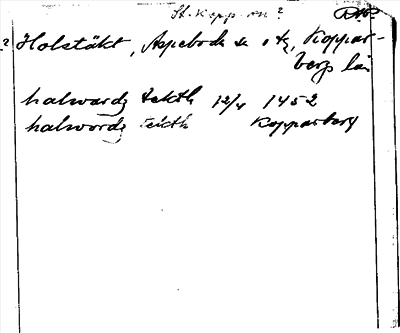 St. Kopp.
? Holstäkt, Aspeboda sn o tg, Koppar-
bergs län
halwardz tekth 12/4 1452
halwordz tekth Kopparberg